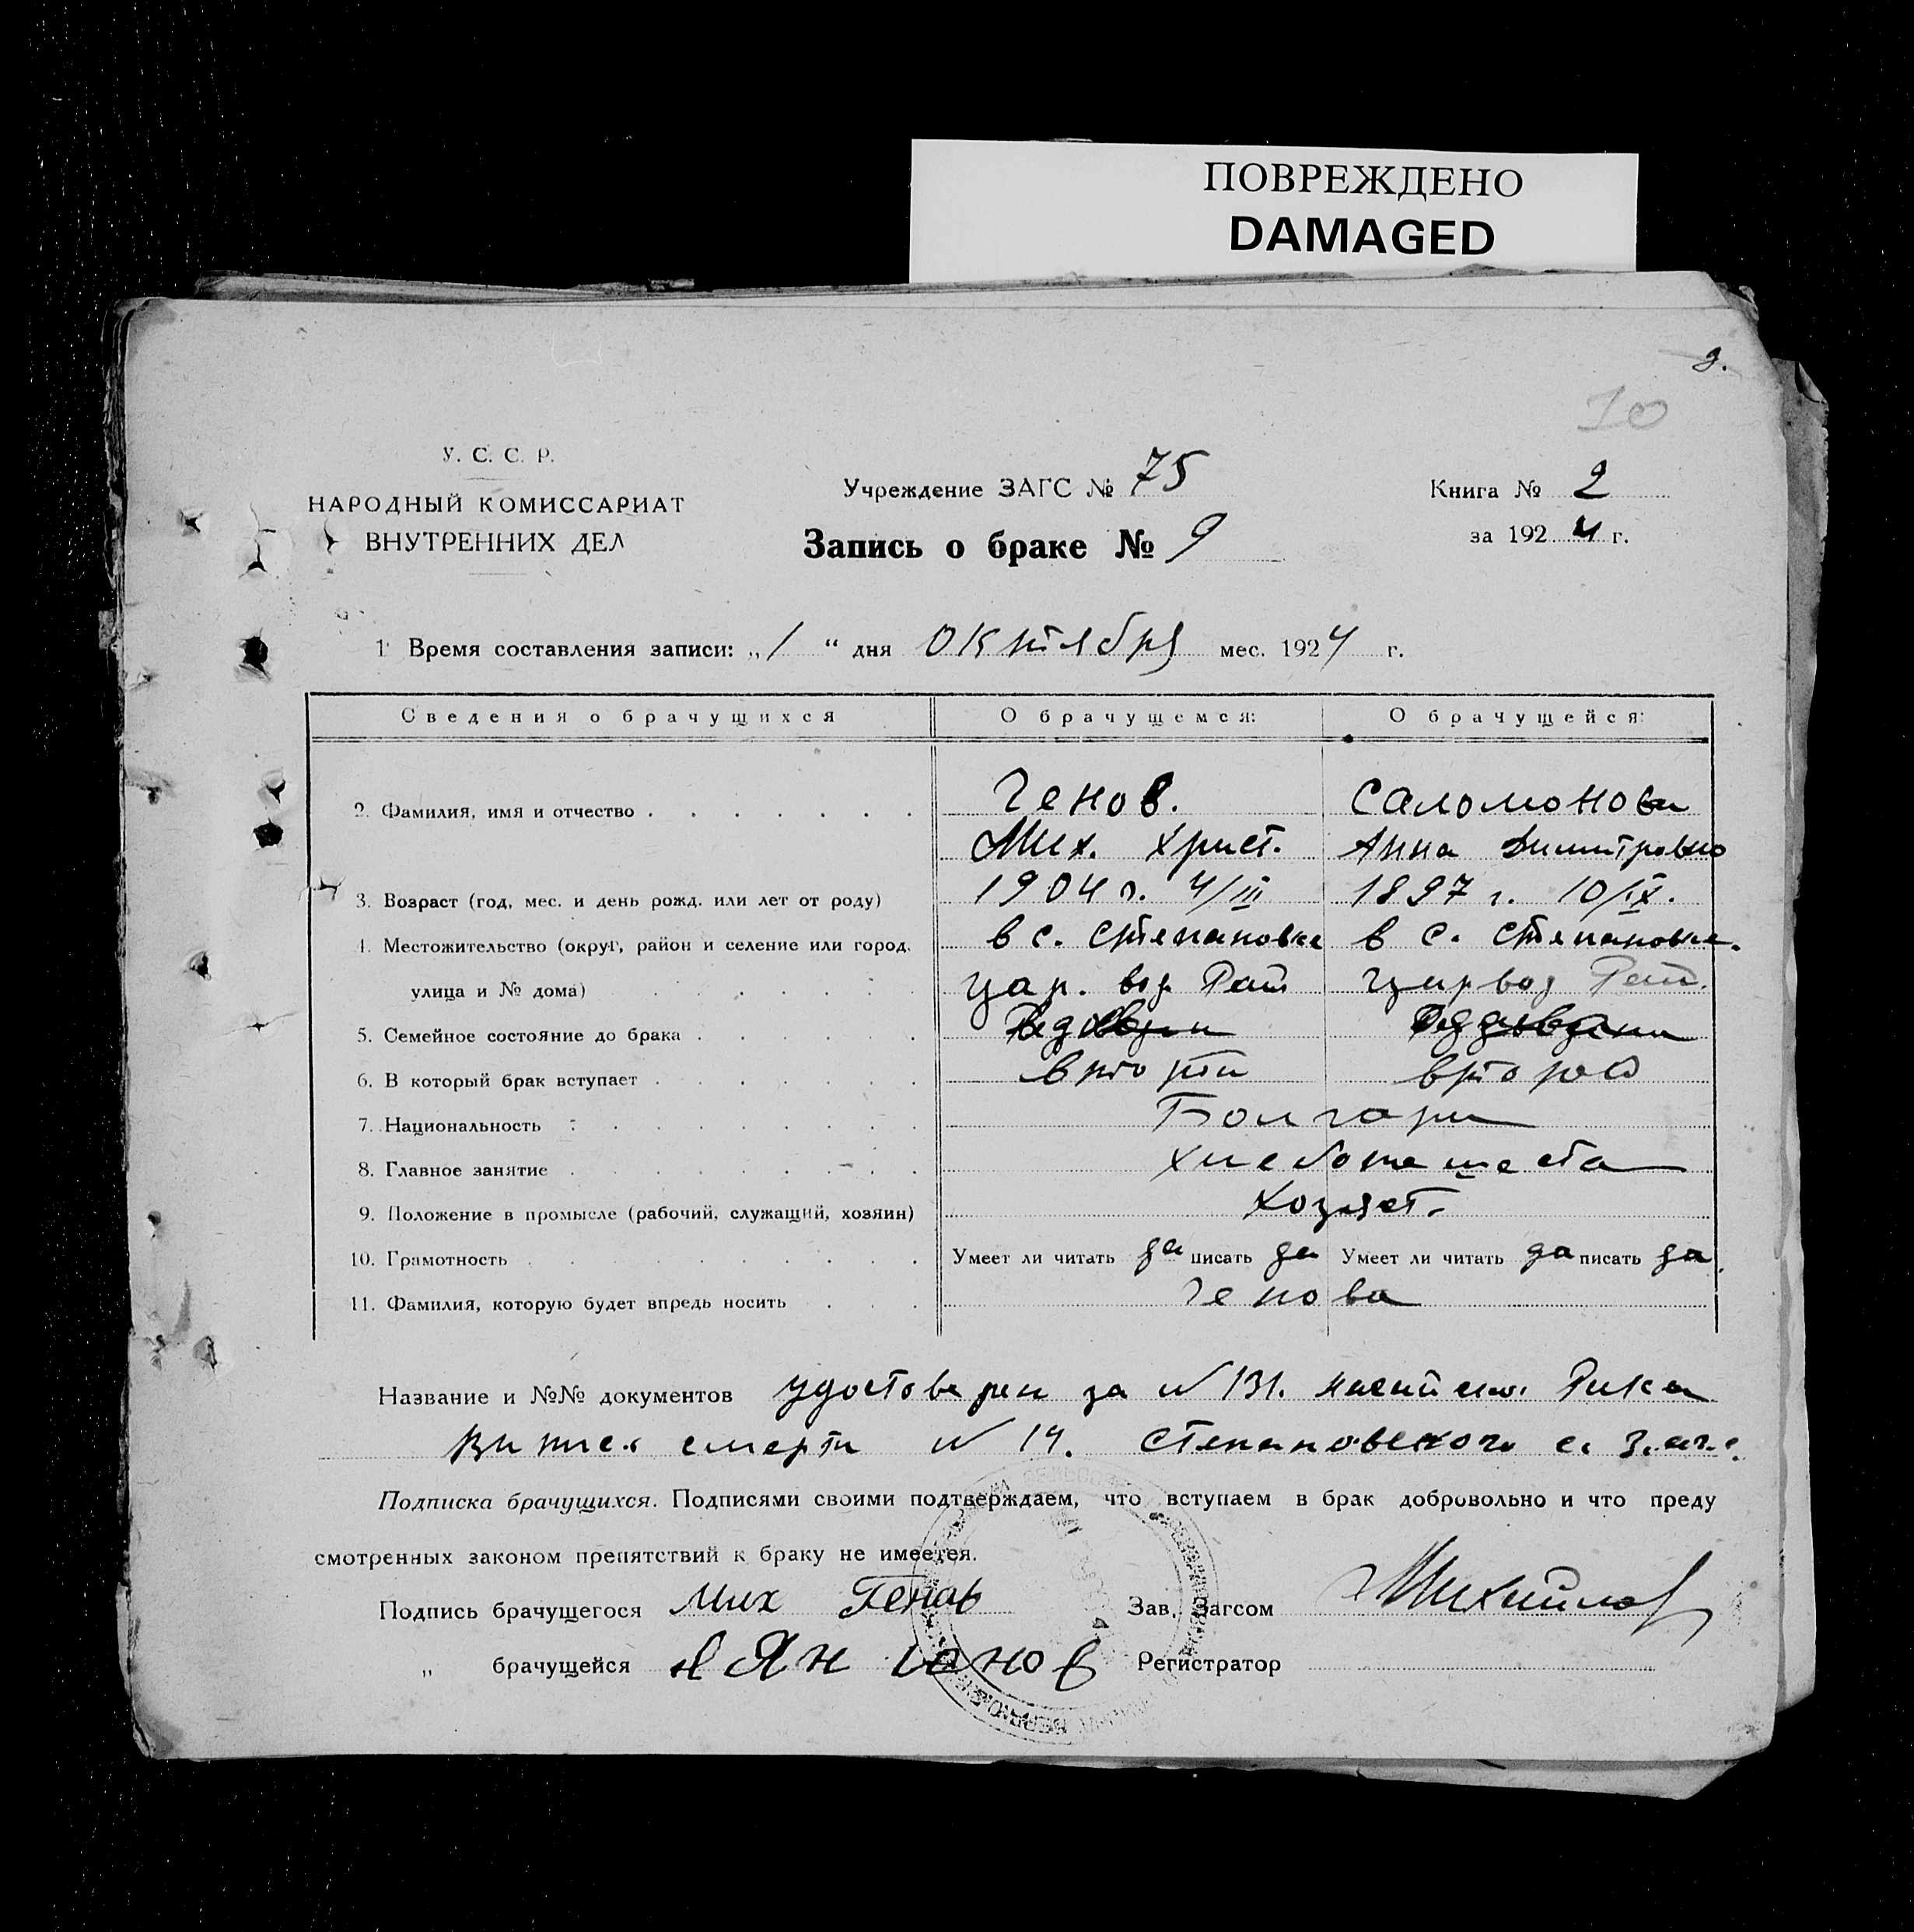 ПОВРЕЖДЕНО
DAMAGED
9.
10
У. С. С. Р.
НАРОДНЫЙ КОМИССАРИАТ
ВНУТРЕННИХ ДЕЛ
Учреждение ЗАГС № 75
Запись о браке № 9
Книга № 2
за 1924 г.
1 Время составления записи: „1 “ дня октября мес. 1924 г.
Сведения о брачущихся О брачущемся: О брачущейся:
2. Фамилия, имя и отчество Генов. Саломонова
Мих. Христ. Анна Димитровна
3. Возраст (год, мес. и день рожд. или лет от роду) 1904 г. 4/III 1897 г. 10/IX.
4. Местожительство (округ, район и селение или город, в с. Степановке в с. Степановке.
улица и № дома) Цар. вод Рай Царвод Рай.
5. Семейное состояние до брака
6. В который брак вступает второй
7. Национальность Болгари
8. Главное занятие хлебопашества
9. Положение в промысле (рабочий, служащий, хозяин)
10. Грамотность Умеет ли читать да писать да Умеет ли читать да писать да
11. Фамилия, которую будет впредь носить Генова
Название и №№ документов удостоверен за № 131. Рика
смерти № 14. Степановского с. Загс.
Подписка брачущихся. Подписями своими подтверждаем, что вступаем в брак добровольно и что преду
смотренных законом препятствий к браку не имеется.
Подпись брачущегося Мих Генов Зав. Загсом Михайлов
„ брачущейся Регистратор